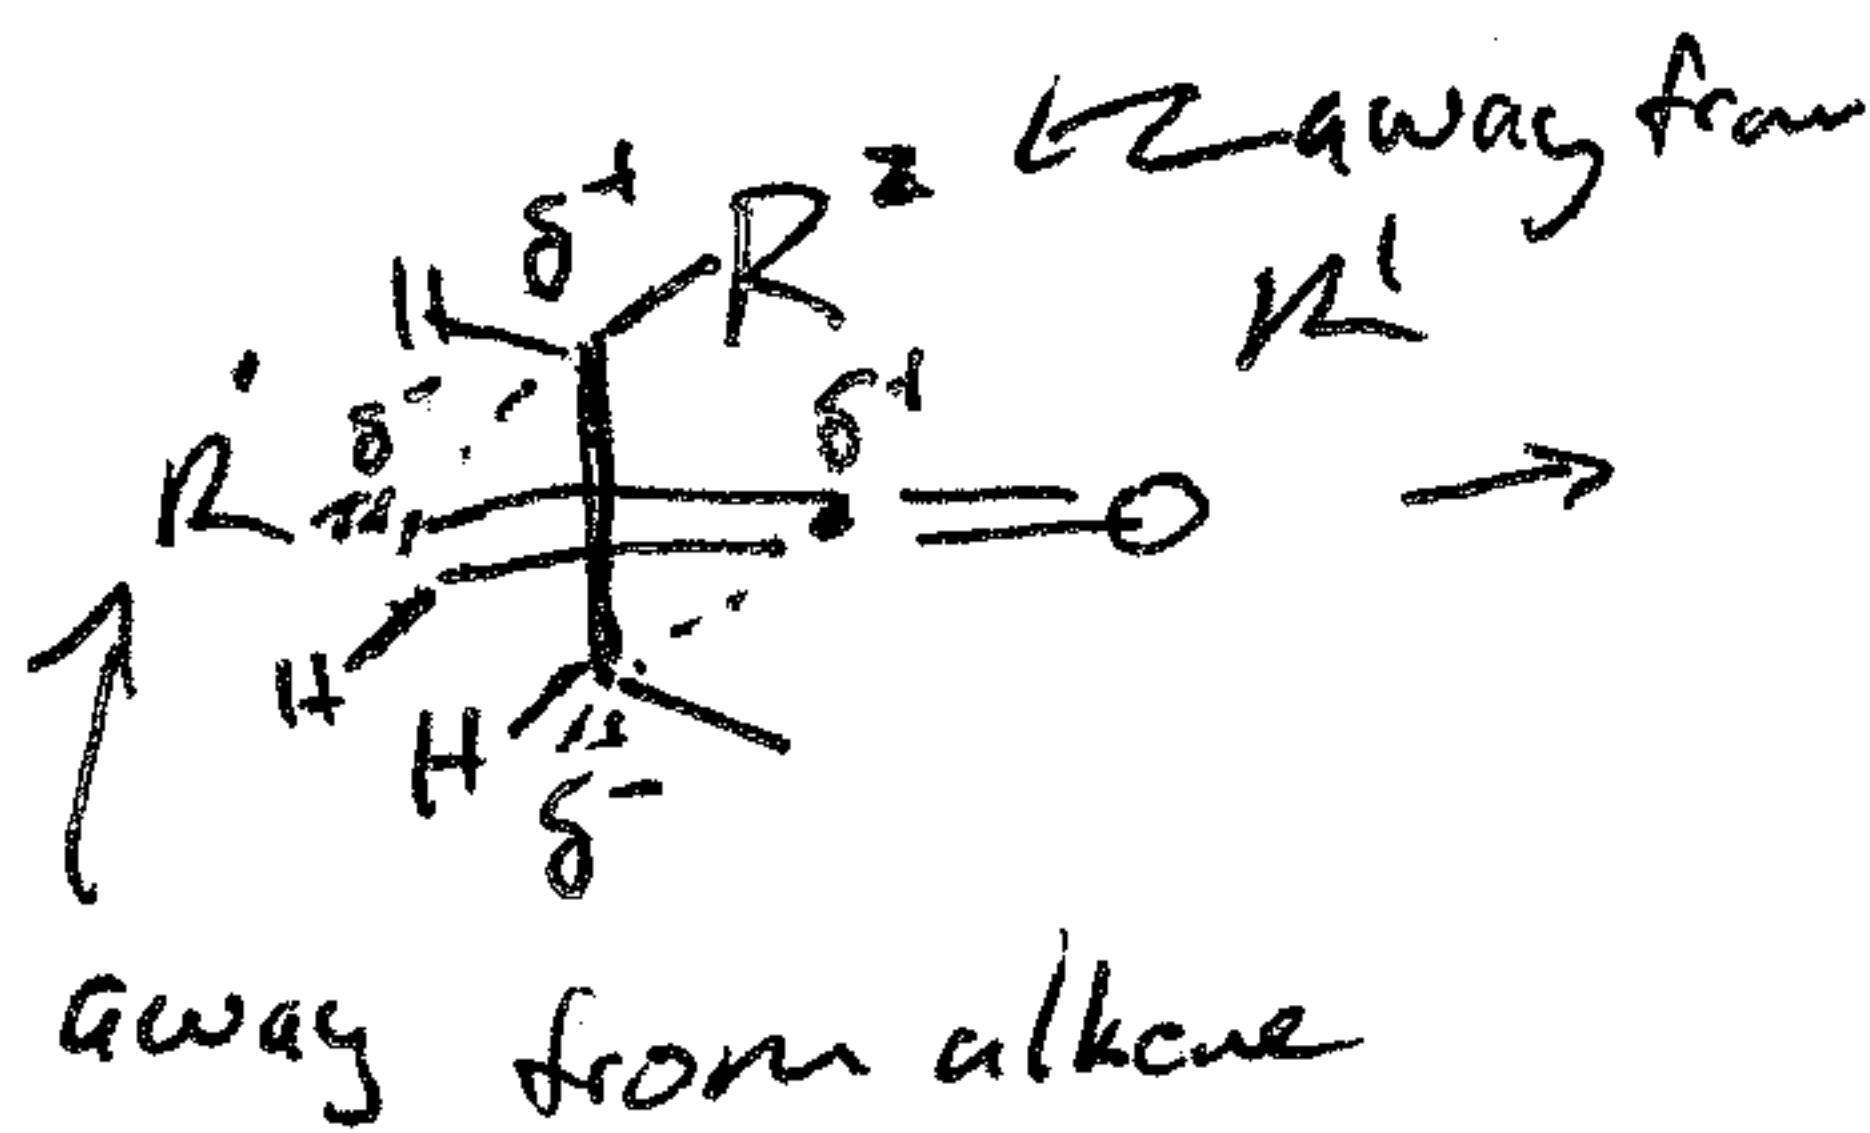 away from
R'
δ+
R²
H
δ+
R'
δ-
O
H
H
δ-
away from alkene